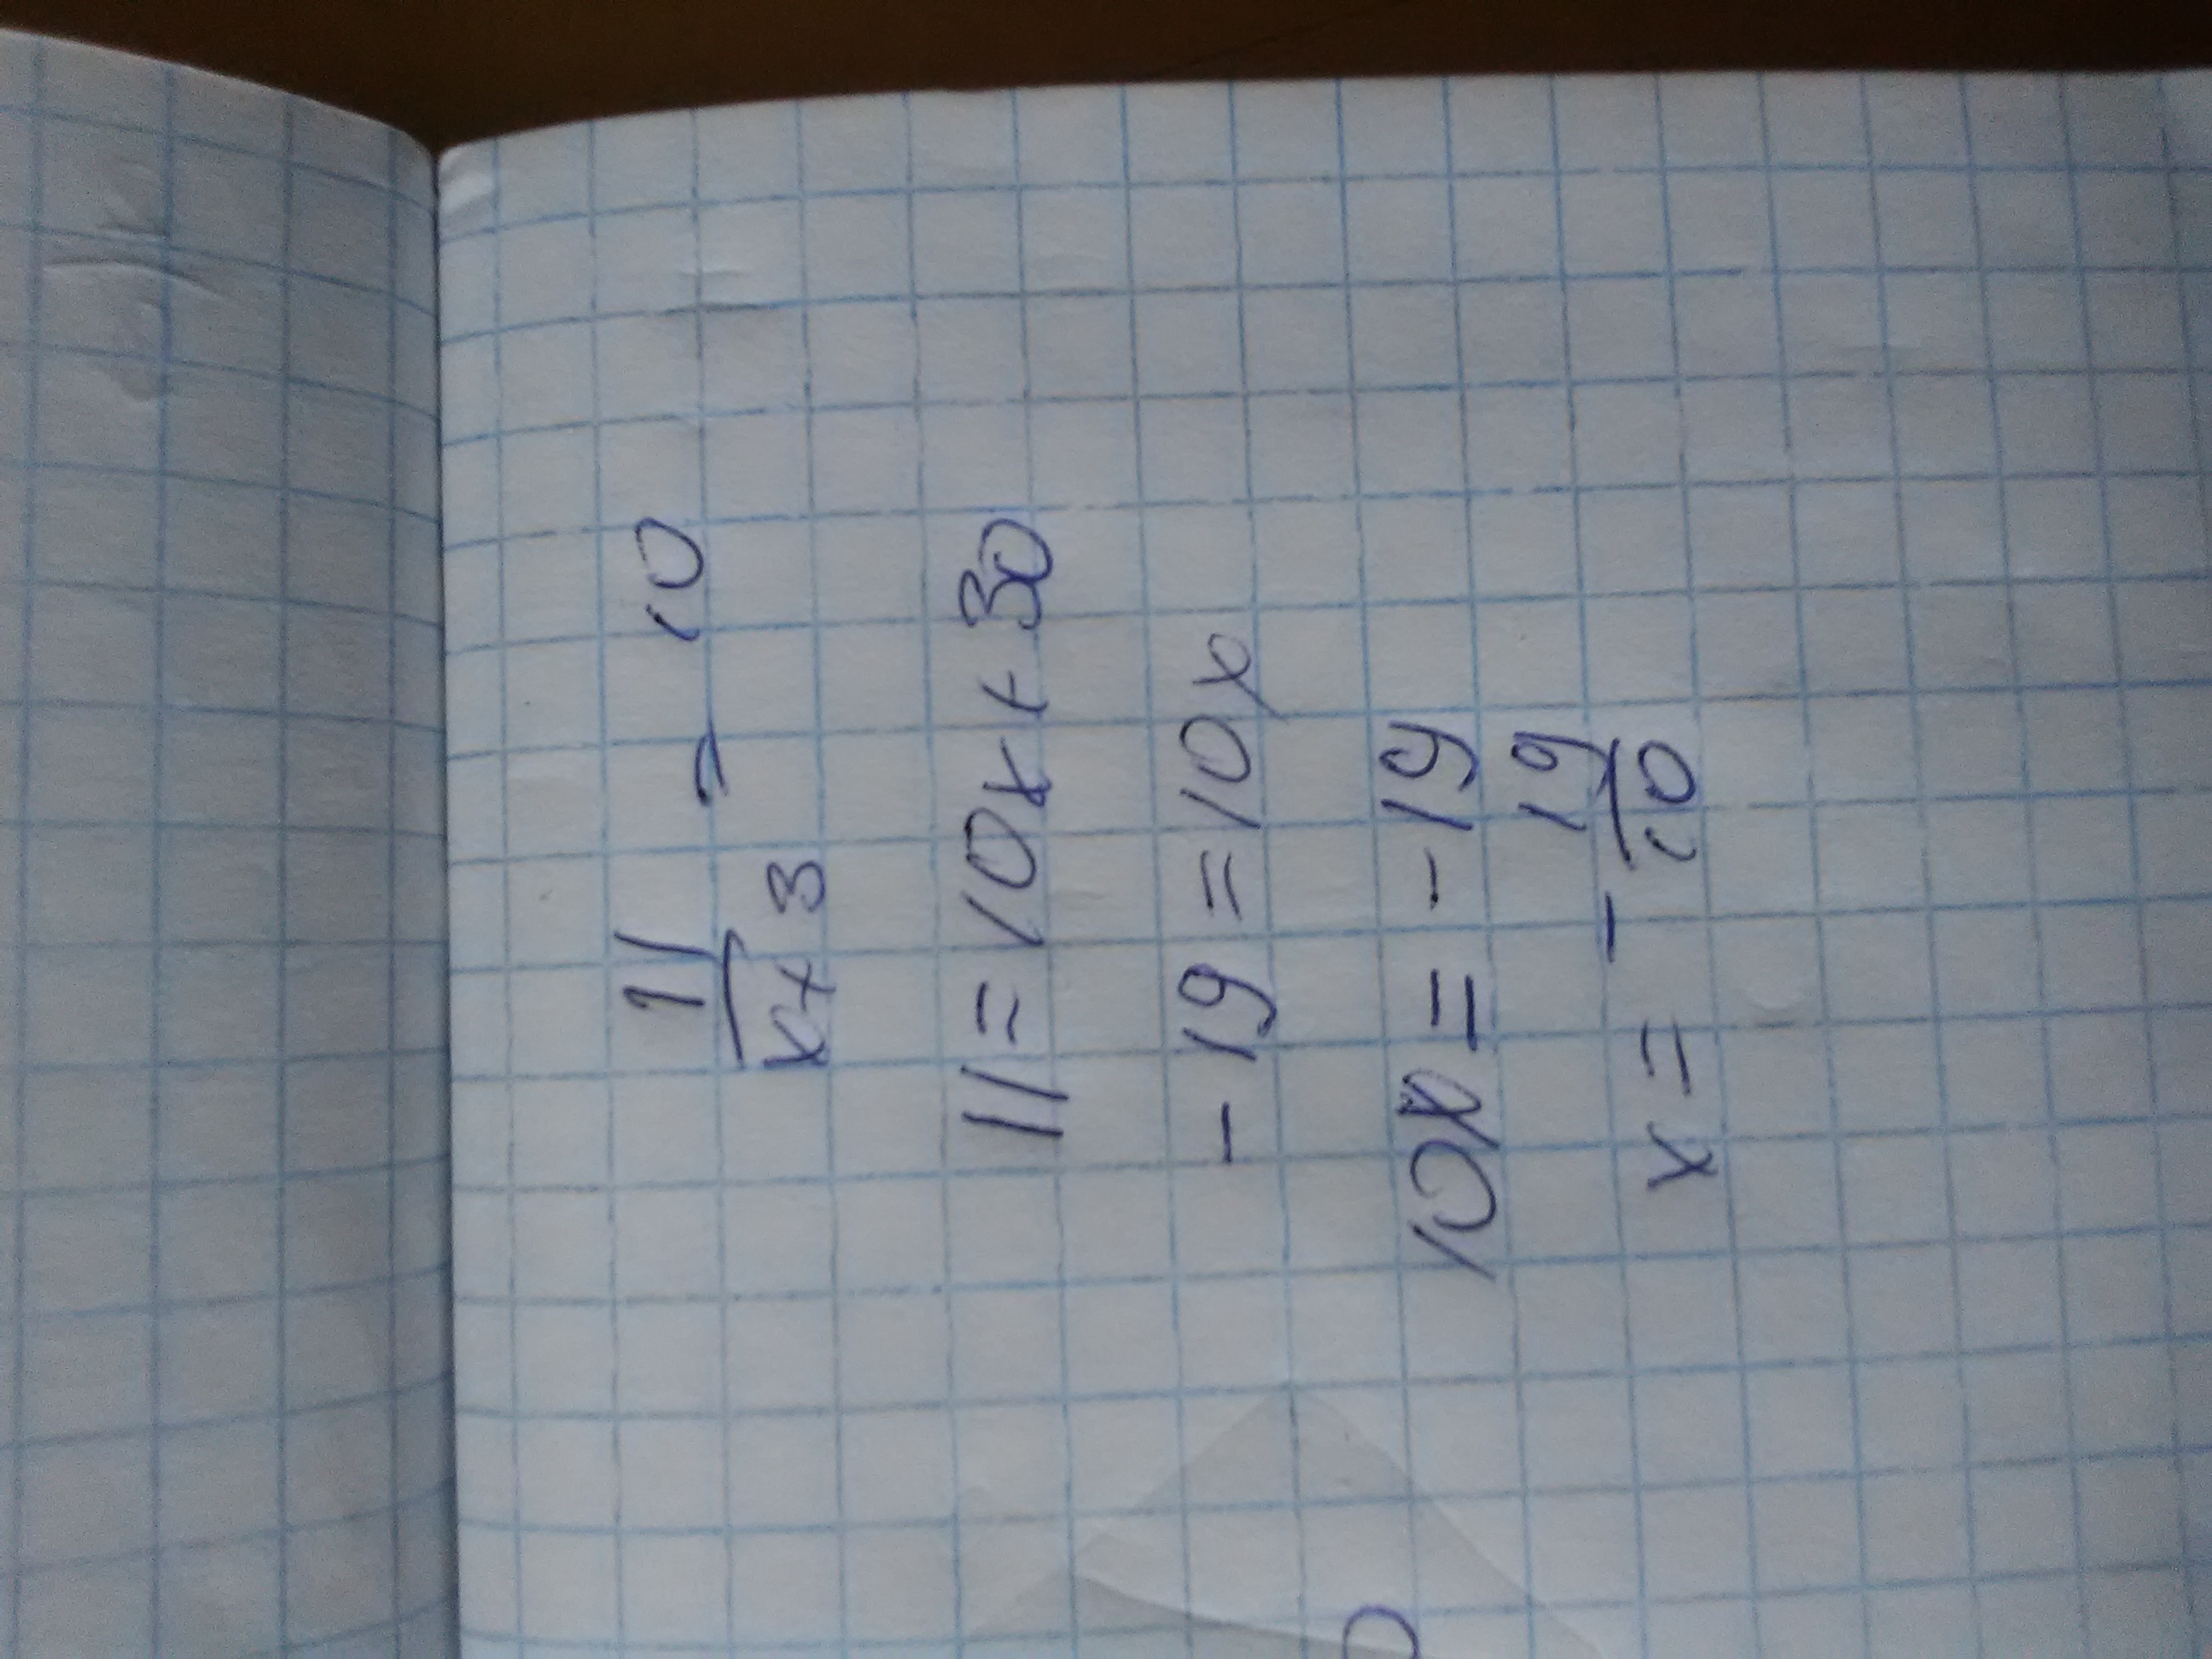 11/(x+3) = 10
11 = 10x + 30
- 19 = 10x
10x = - 19
x = - 19/10